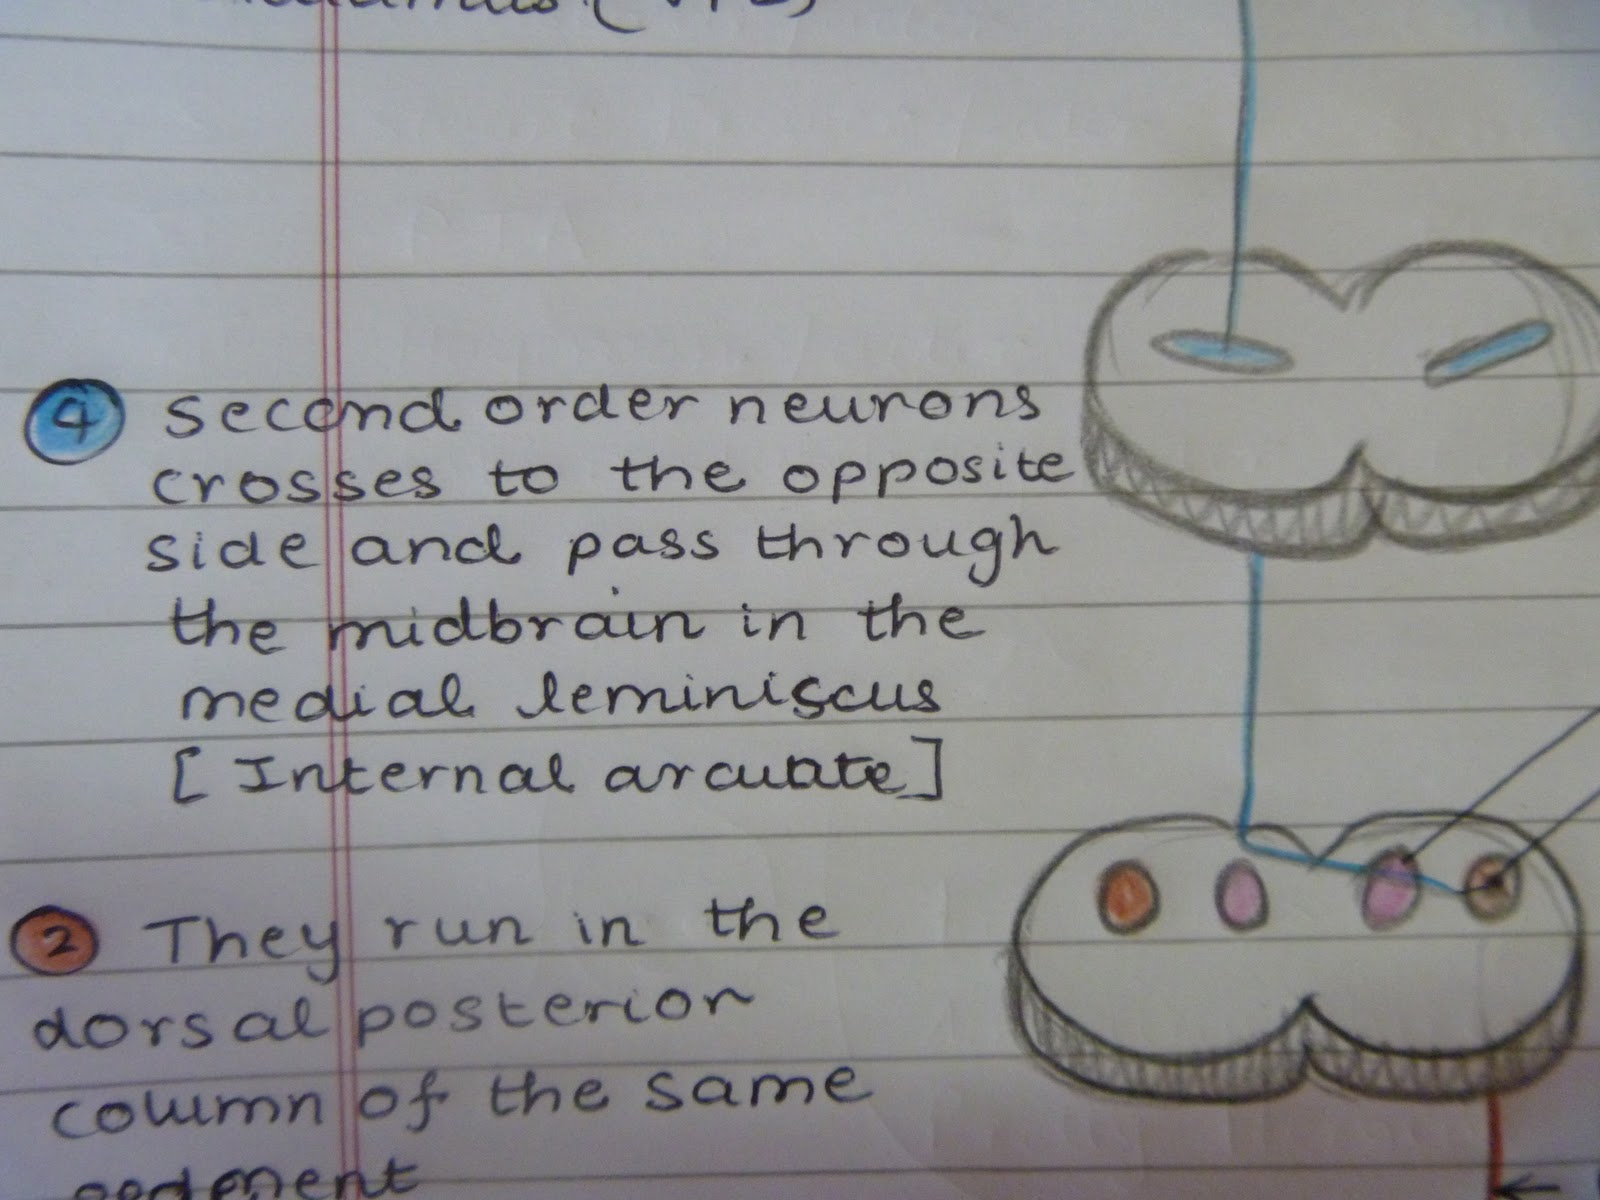 4 second order neurons
crosses to the opposite
side and pass through
the midbrain in the
medial leminiscus
[ Internal arcuate ]
2 They run in the
dorsal posterior
column of the same